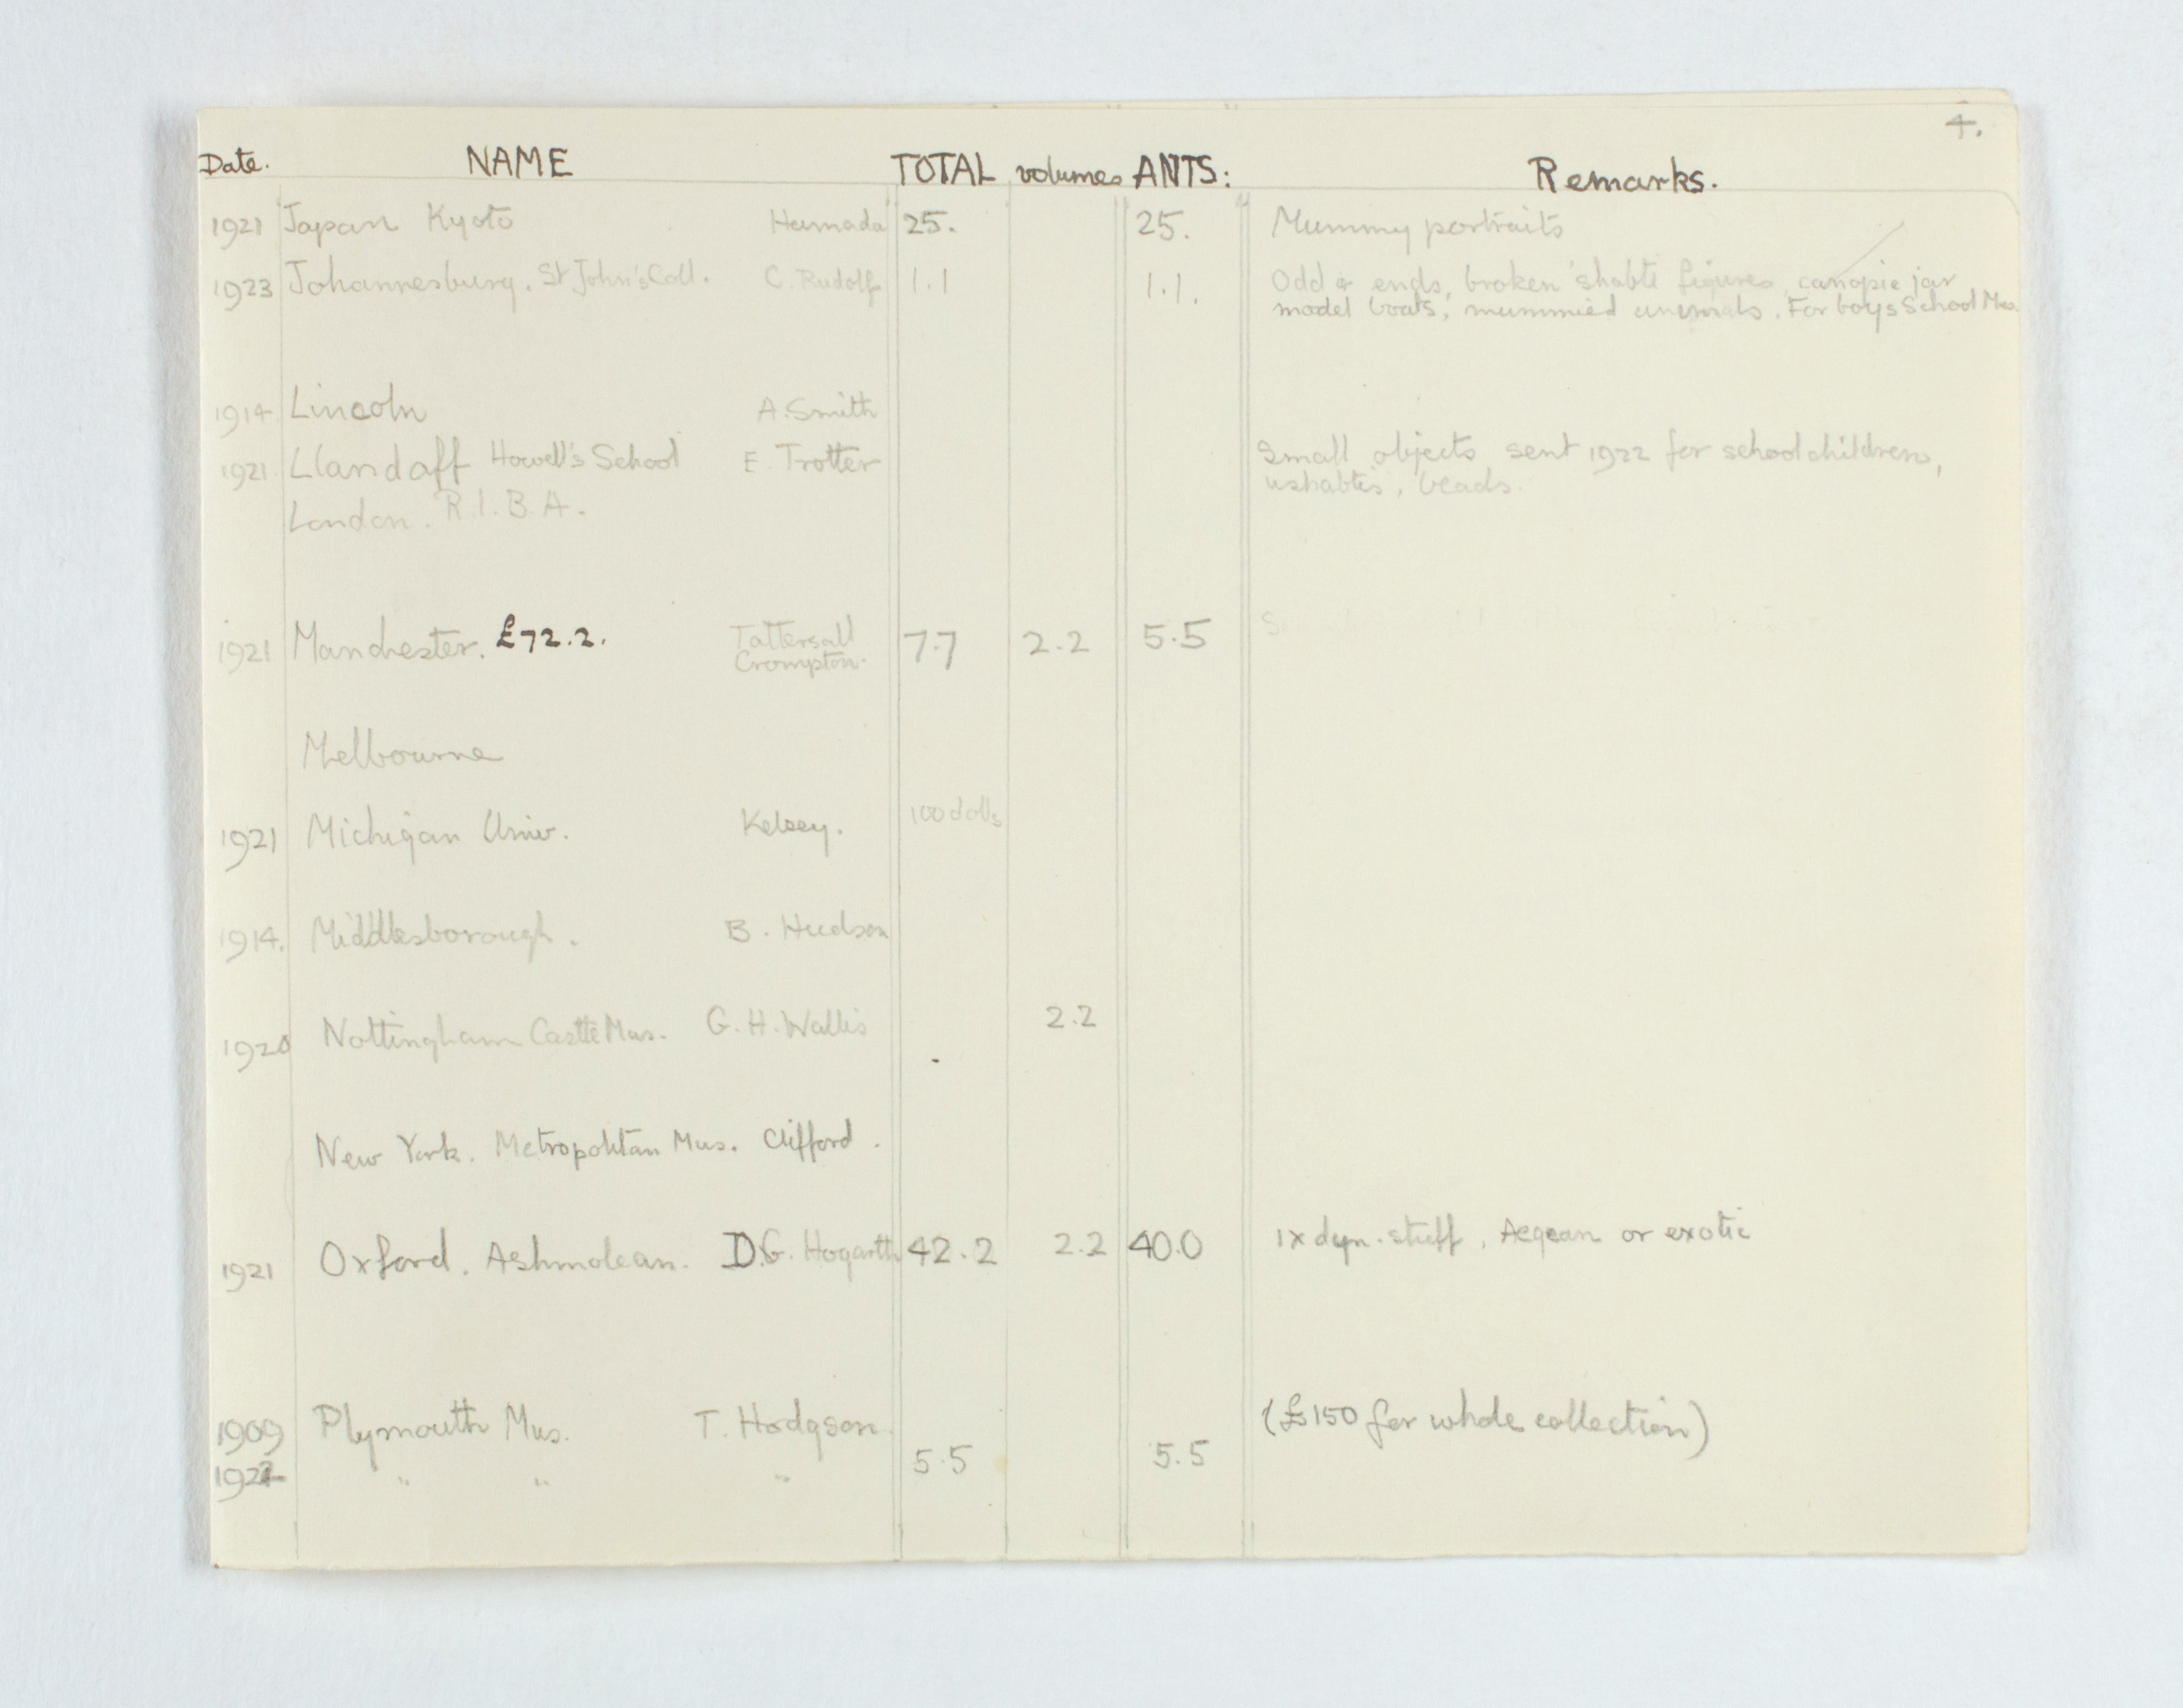 4.
Date. NAME TOTAL volumes ANTS: Remarks.
1921 Japan Kyoto Hamada 25. 25. Mummy portraits
1923 Johannesburg. St John's Coll. C. Rudolf 1.1 1.1. Odd & ends, broken 'shabti figures, canopic jar
model boats, mummied animals. For boys School Mus.
1914 Lincoln A. Smith
1921. Llandaff Howell's School E. Trotter Small objects sent 1922 for schoolchildren,
ushabtis, beads.
London. R.I.B.A.
1921 Manchester. £72.2. Tattersall 7.7 2.2 5.5
Crompton.
Melbourne
1921 Michigan Univ. Kelsey. 100 dolls
1914. Middlesborough. B. Hudson
1920 Nottingham Castle Mus. G. H. Wallis 2.2
New York. Metropolitan Mus. Clifford.
1921 Oxford. Ashmolean. D.G. Hogarth 42.2 2.2 40.0 IX dyn. stuff, Aegean or exotic
1909 Plymouth Mus. T. Hodgson. (£150 for whole collection)
1922 " " " 5.5 5.5